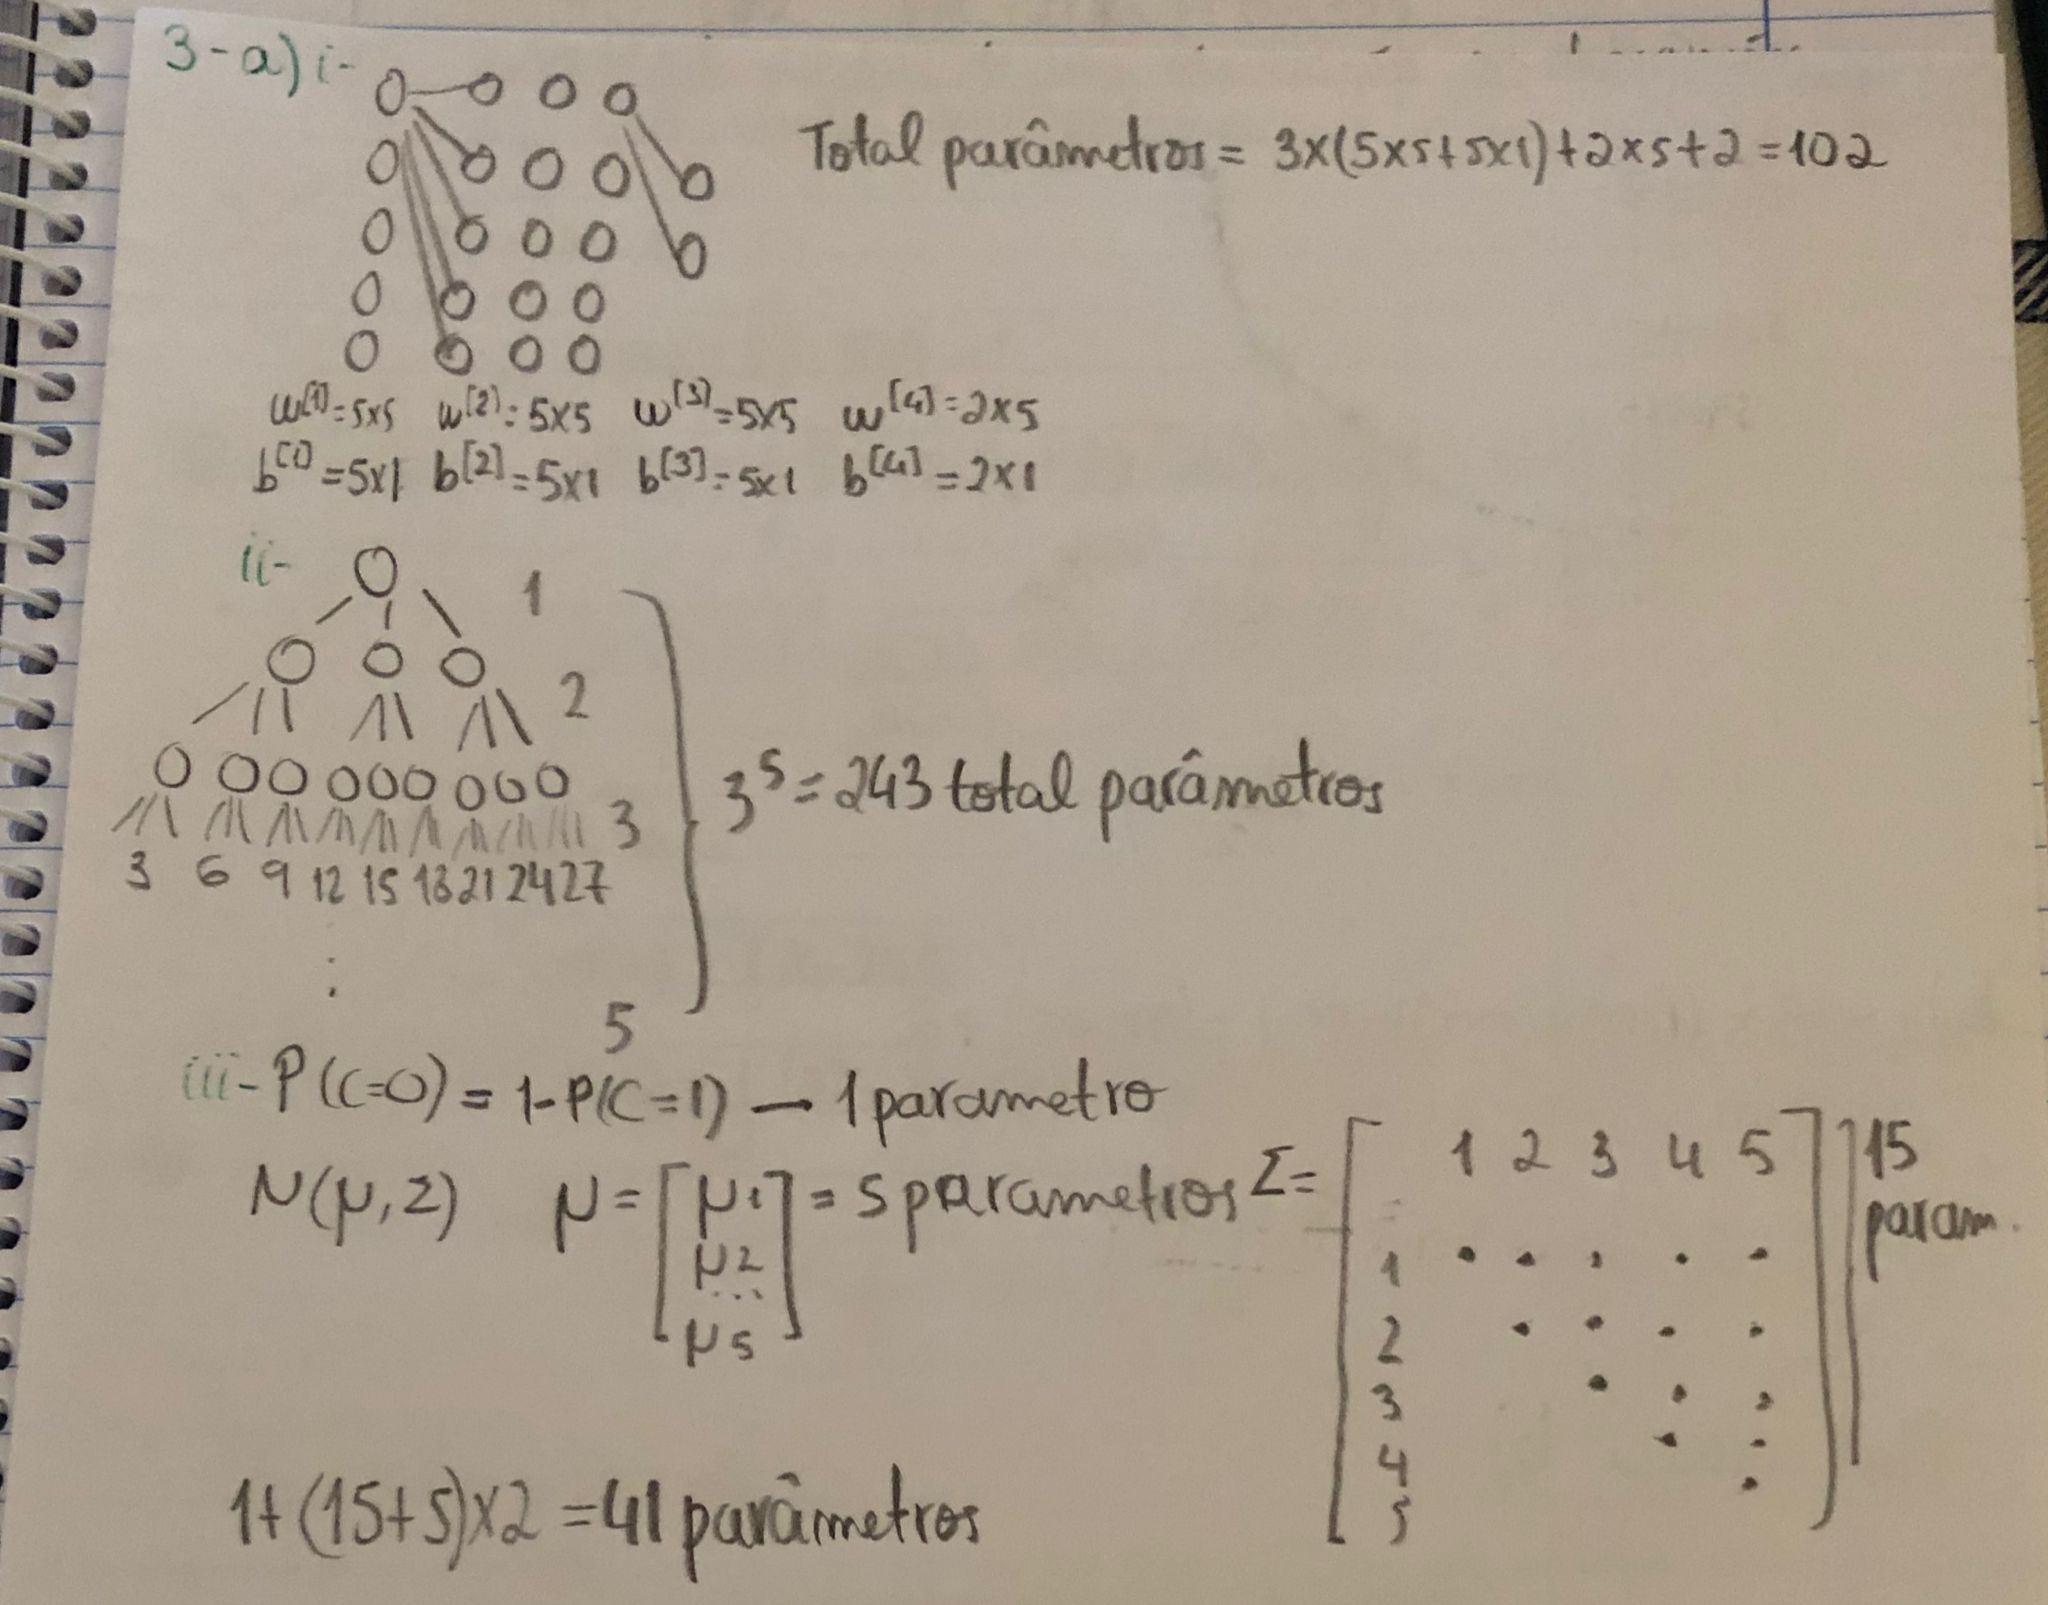 3-a) i-
Total parâmetros = 3x(5x5+5x1)+2x5+2=102
w[1]=5x5 w[2]=5x5 w[3]=5x5 w[4]=2x5
b[1]=5x1 b[2]=5x1 b[3]=5x1 b[4]=2x1
ii-
1
2
3
3 6 9 12 15 18 21 24 27
:
5
3^5=243 total parâmetros
iii- P(C=0) = 1-P(C=1) — 1 parametro
N(μ,Σ) μ=[μ1 μ2 ... μ5] = 5 parametros Σ=
1 2 3 4 5
1
2
3
4
5
15
param.
1+(15+5)x2=41 parâmetros